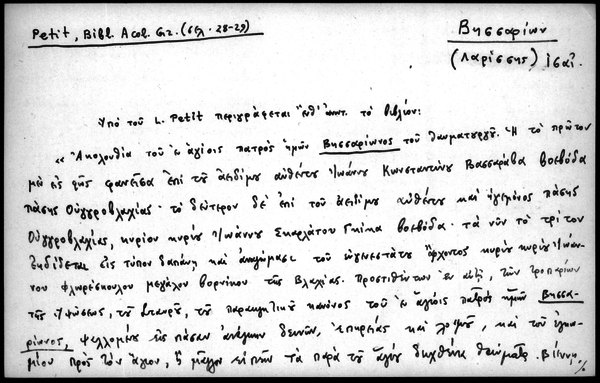 Petit, Bibl. Acol. Gr. (σελ. 28-29)
Βησσαρίων
(Λαρίσσης) ἰσαπ.
Ὑπὸ τοῦ L. Petit περιγράφεται τὸ βιβλίον:
« Ἀκολουθία τοῦ ἐν ἁγίοις πατρὸς ἡμῶν Βησσαρίωνος τοῦ θαυματουργοῦ. Ἡ τὸ πρῶτον
μὲν εἰς φῶς φανεῖσα ἐπὶ τοῦ ἀειδίμου αὐθέντου Ἰωάννου Κωνσταντίνου Βασσαράβα βοεβόδα
πάσης Οὐγγροβλαχίας· τὸ δεύτερον δὲ ἐπὶ τοῦ ἀειδίμου αὐθέντου καὶ ἡγεμόνος πάσης
Οὐγγροβλαχίας, κυρίου κυρίου Ἰωάννου Σκαρλάτου Γκίκα βοεβόδα· τὰ νῦν τὸ τρίτον
ἐκδίδεται εἰς τύπον δαπάνῃ καὶ ἀναλώμασι τοῦ εὐγενεστάτου ἄρχοντος κυρίου κυρίου Ἰωάν-
νου Φλωρεσκούλου μεγάλου βορνίκου τῆς Βλαχίας. Προστιθέντων ἐν αὐτῇ, τῶν τροπαρίων
τῆς ὑψώσεως, τοῦ σταυροῦ, τοῦ παρακλητικοῦ κανόνος τοῦ ἐν ἁγίοις πατρὸς ἡμῶν Βησσα-
ρίωνος, ψελλομένου εἰς πᾶσαν ἀνάγκην δεινῶν, ἐπηρείας καὶ λοιμοῦ, καὶ τοῦ ἐγκω-
μίου πρὸς τὸν ἅγιον, ἢ μᾶλλον εἰπεῖν τὰ παρὰ τοῦ ἁγίου δειχθέντα θαύματα. Βιέννη,